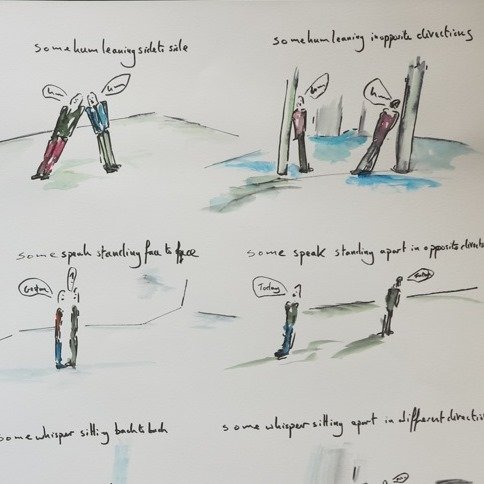 some hum leaning side to side
some hum leaning in opposite directions
hm
hm
hm
hm
some speak standing face to face
some speak standing apart in opposite directi
Today
some whisper sitting back to back
some whisper sitting apart in different directi